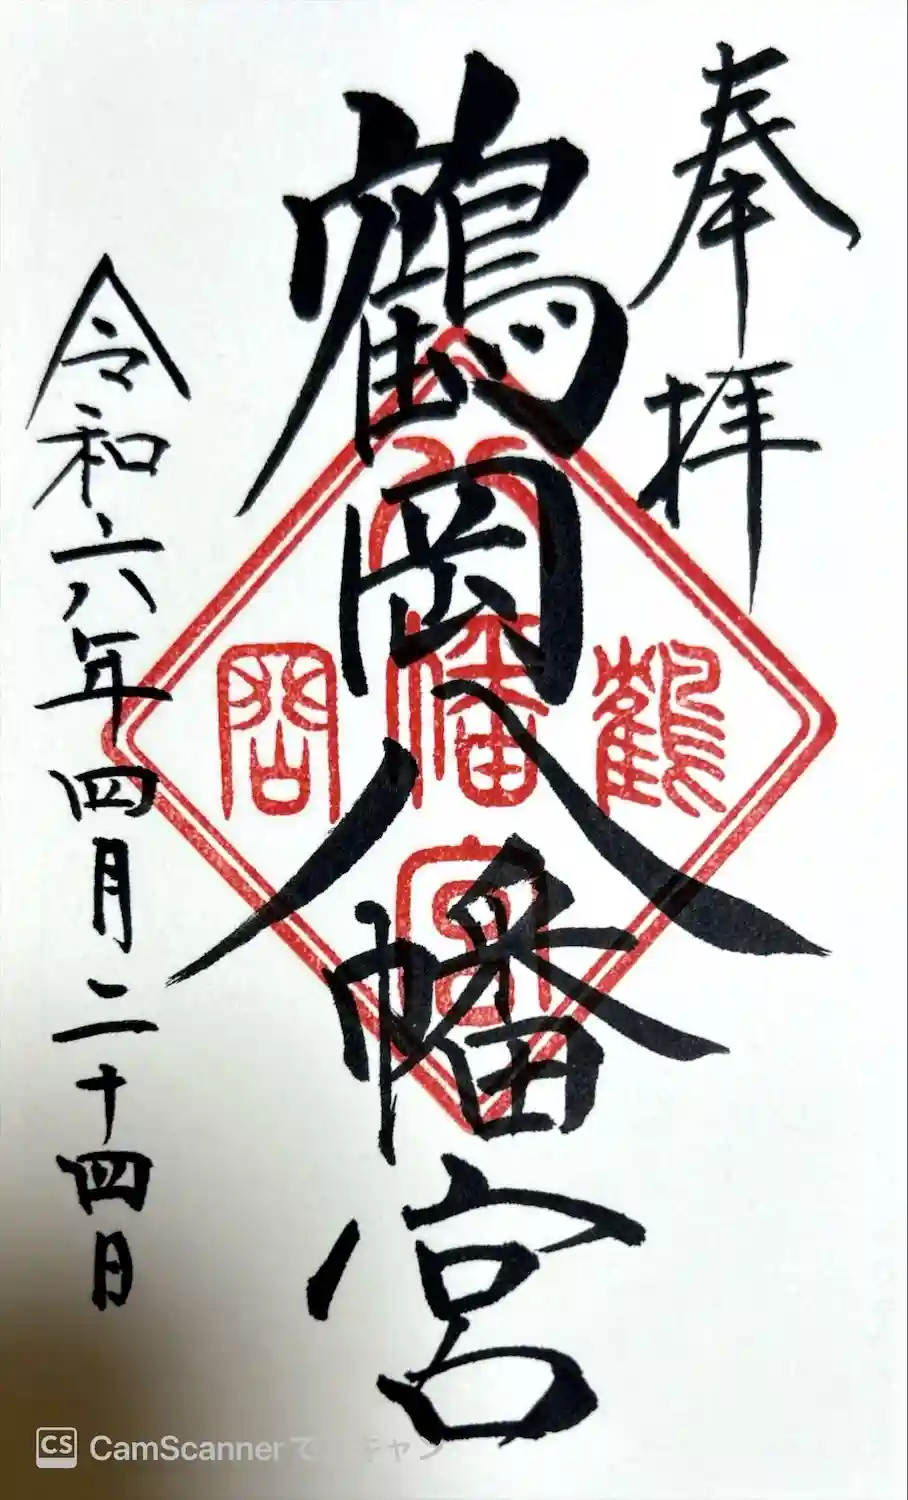 奉拝
鶴岡八幡宮
令和六年四月二十四日
鶴
八幡宮
岡
CS CamScannerでスキャン